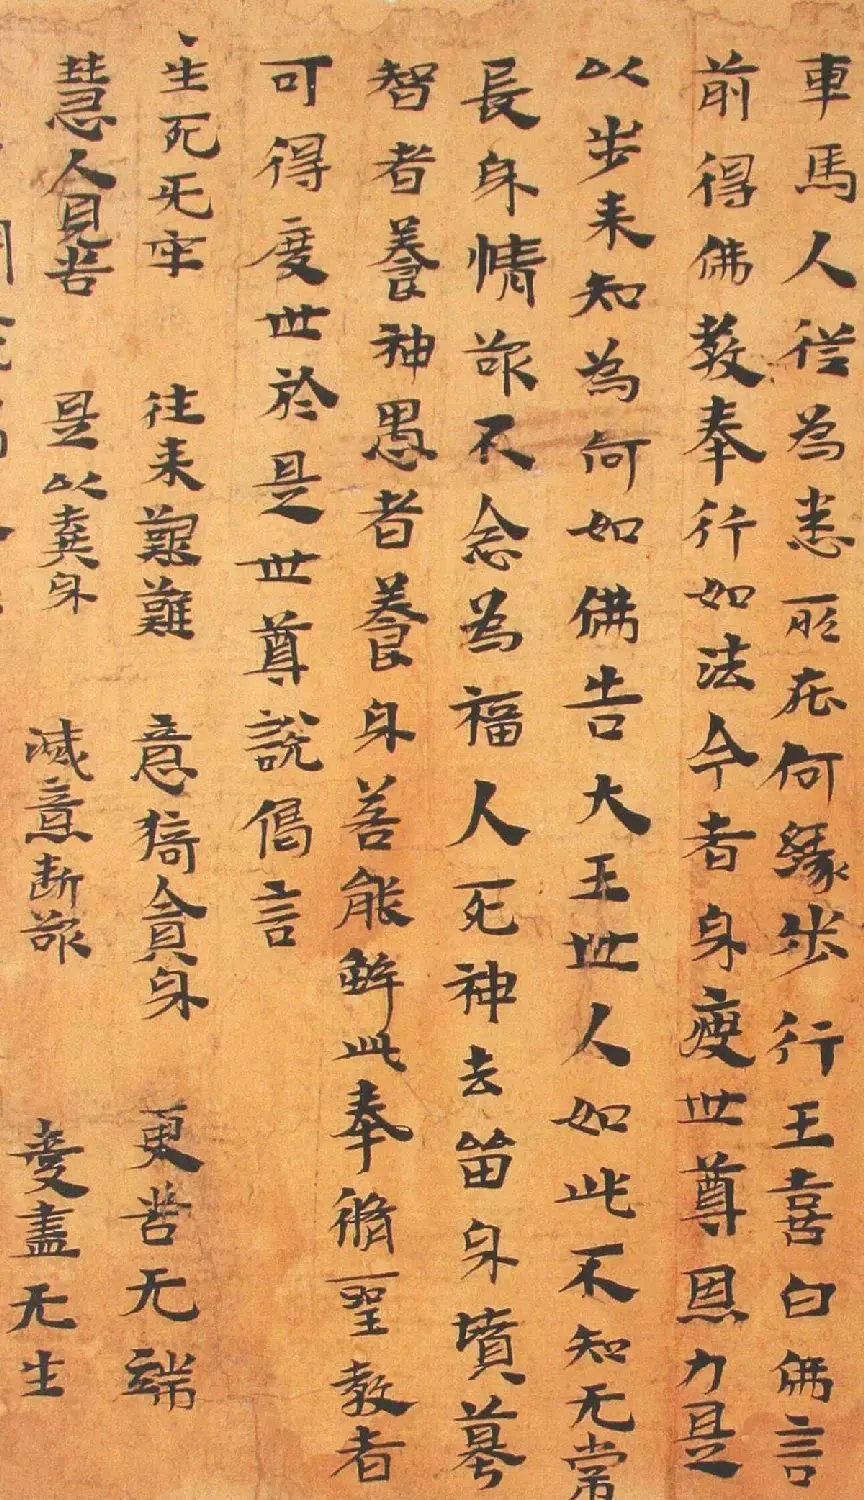 車馬人從為悉所在何緣步行王喜白佛言
前得佛教奉行如法今者身瘦世尊恩力是
以步来知為何如佛告大王世人如此不知无常
長身情欲不念為福人死神去留身墳墓
智者養神愚者養身若能解此奉脩聖教者
可得度世於是世尊說偈言
生死无牢 往来艱難 意猗貪身 更苦无端
慧人見苦 是以棄身 滅意断欲 愛盡无生